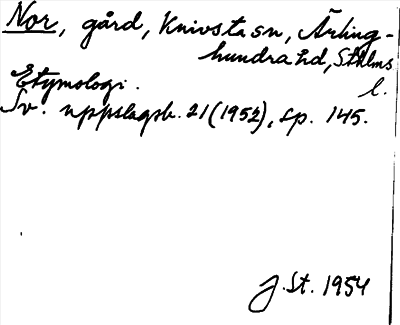 Nor, gård, Knivsta sn, Ärling-
hundra hd, Sthlms
l.
Etymologi.
Sv. uppslagsb. 21 (1952), sp. 145.
J. St. 1954